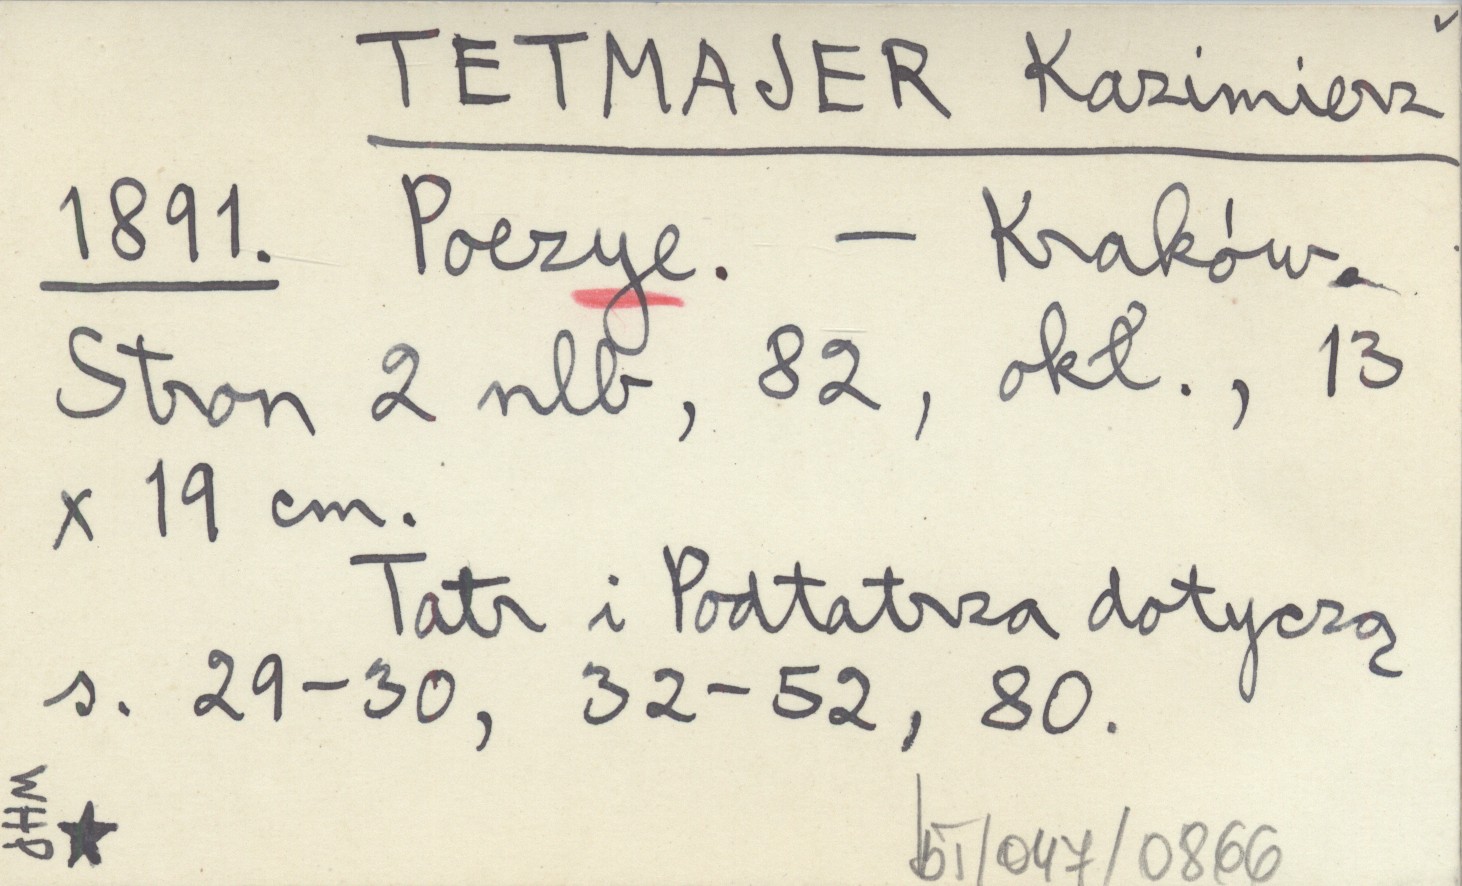 TETMAJER Kazimierz
1891. Poezye. – Kraków.
Stron 2 nlb, 82, okł., 13
x 19 cm.
Tatr i Podtatrza dotyczą
s. 29–30, 32–52, 80.
WHP
bī/047/0866